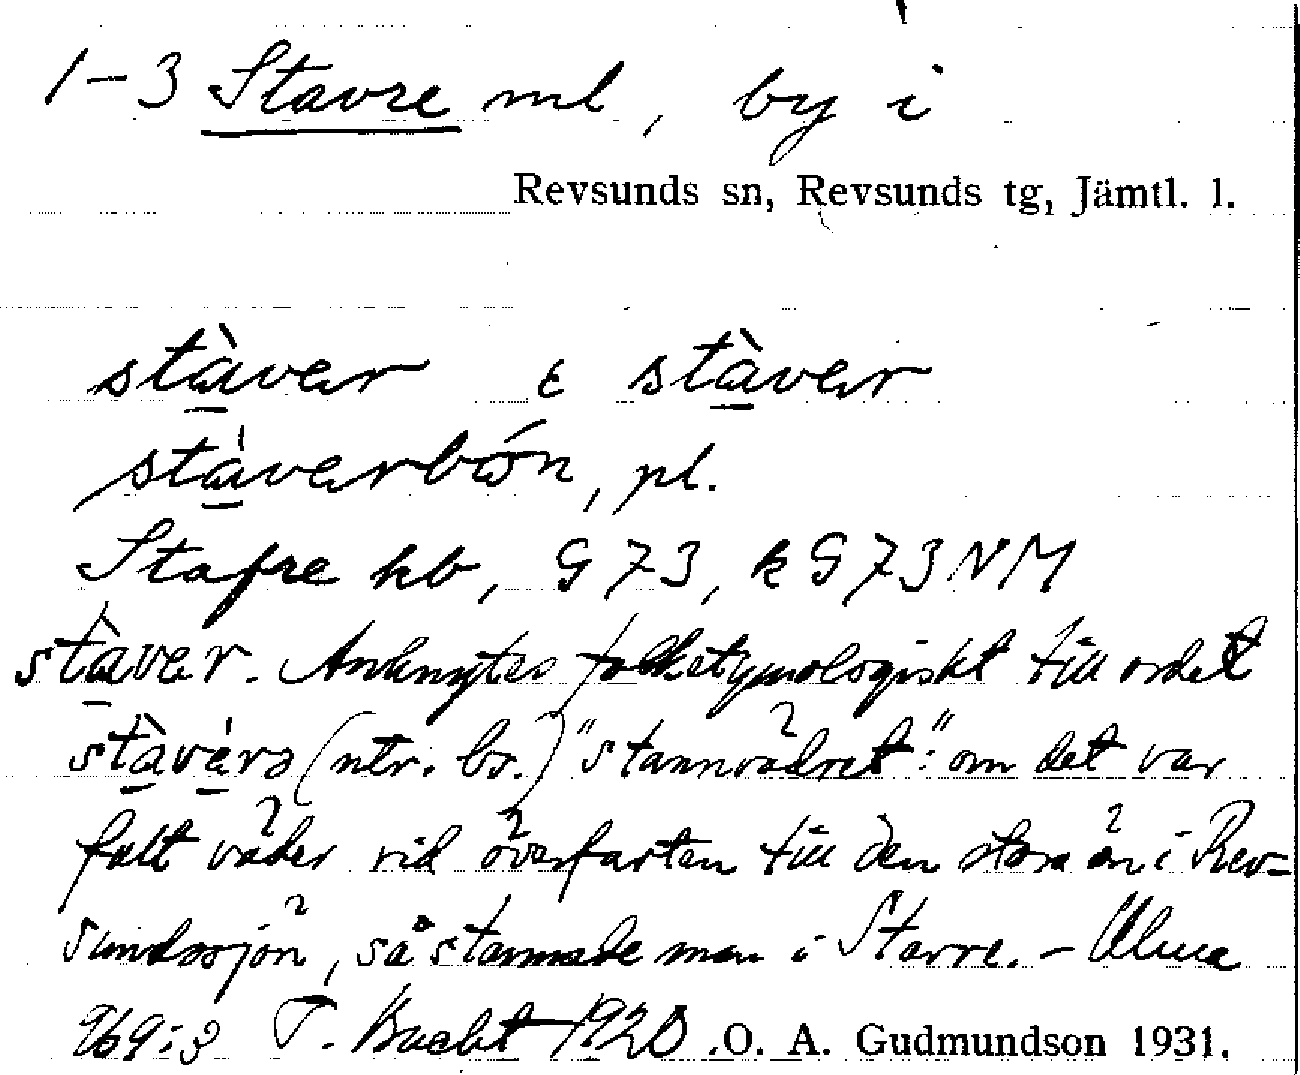 1-3 Stavre ml, by i
Revsunds sn, Revsunds tg, Jämtl. l.
stàver & stàver
stàverbön, pl.
Stafre kb, G 73, k G 73 NM
stàver. Anknytes folketymologiskt till ordet
stàvèrə (ntr. bs.) "stannvädret": om det var
fält väder vid överfarten till den stora ön i Rev-
sundssjön, så stannade man i Stavre. -
T. Bucht 1920 .O. A. Gudmundson 1931.